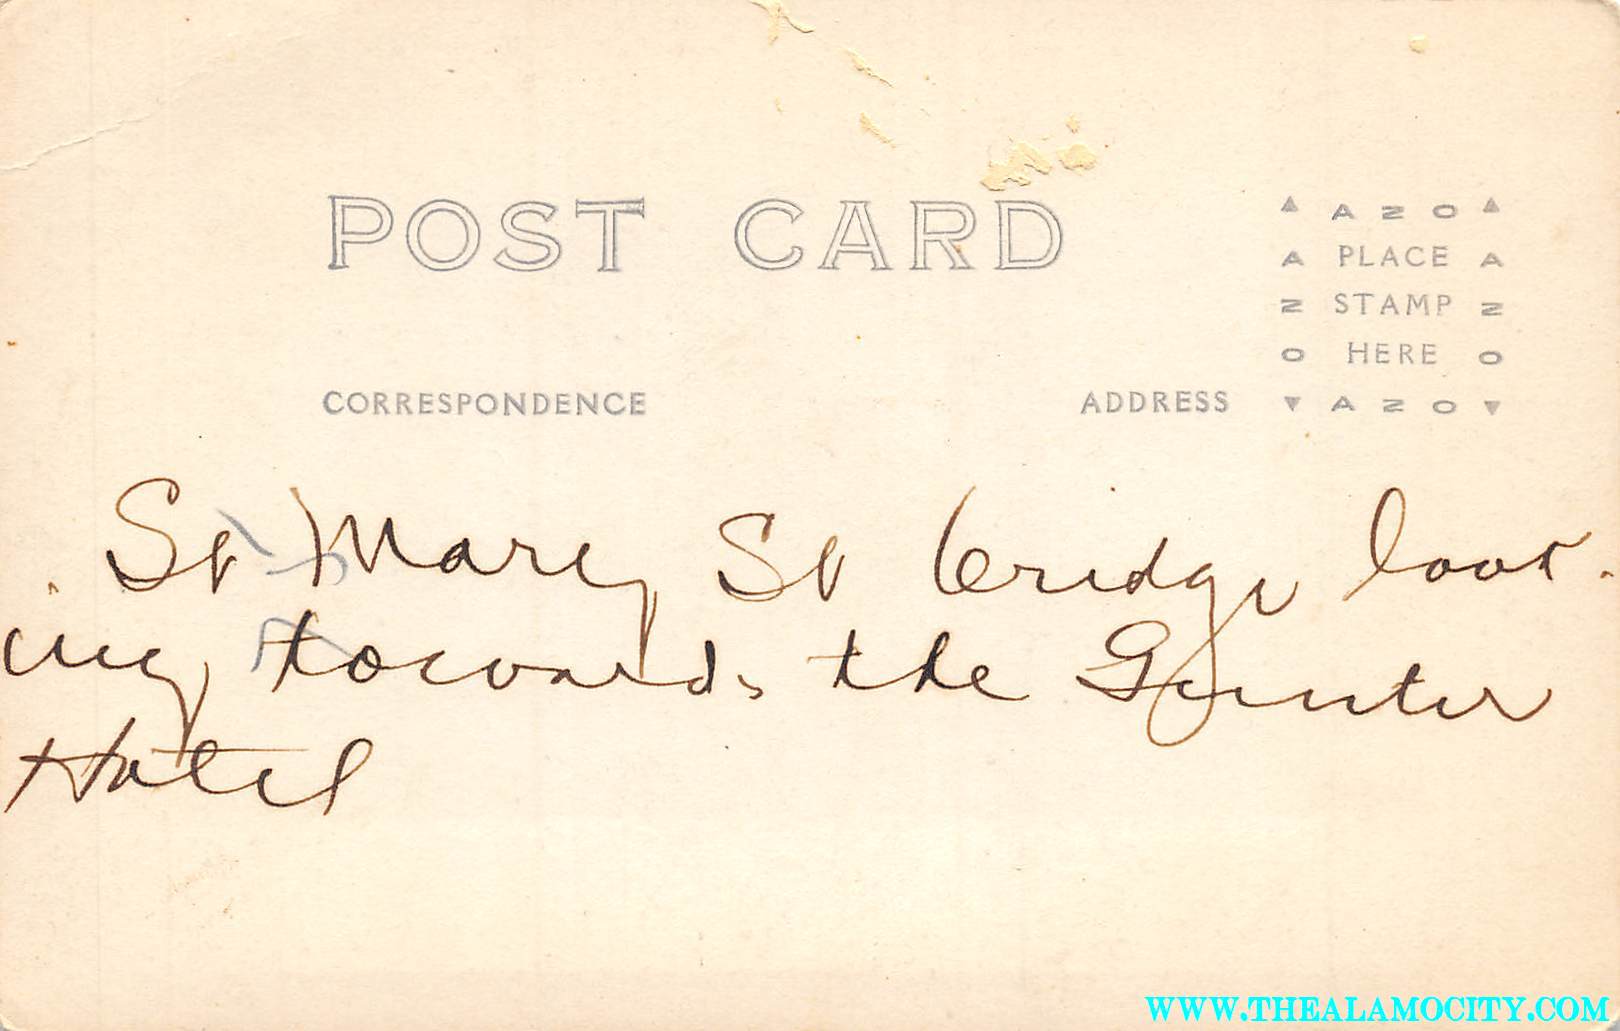 POST CARD
▲ AZO ▲
A PLACE A
Z STAMP Z
O HERE O
▼ AZO ▼
CORRESPONDENCE
ADDRESS
St Mary St bridge look-
ing towards the Gunter
Hotel
WWW.THEALAMOCITY.COM